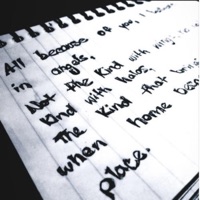 All because of you, I believe
in angels,
Not the kind with wings, 
Kind with halos,
The Kind that bring
when home
place.